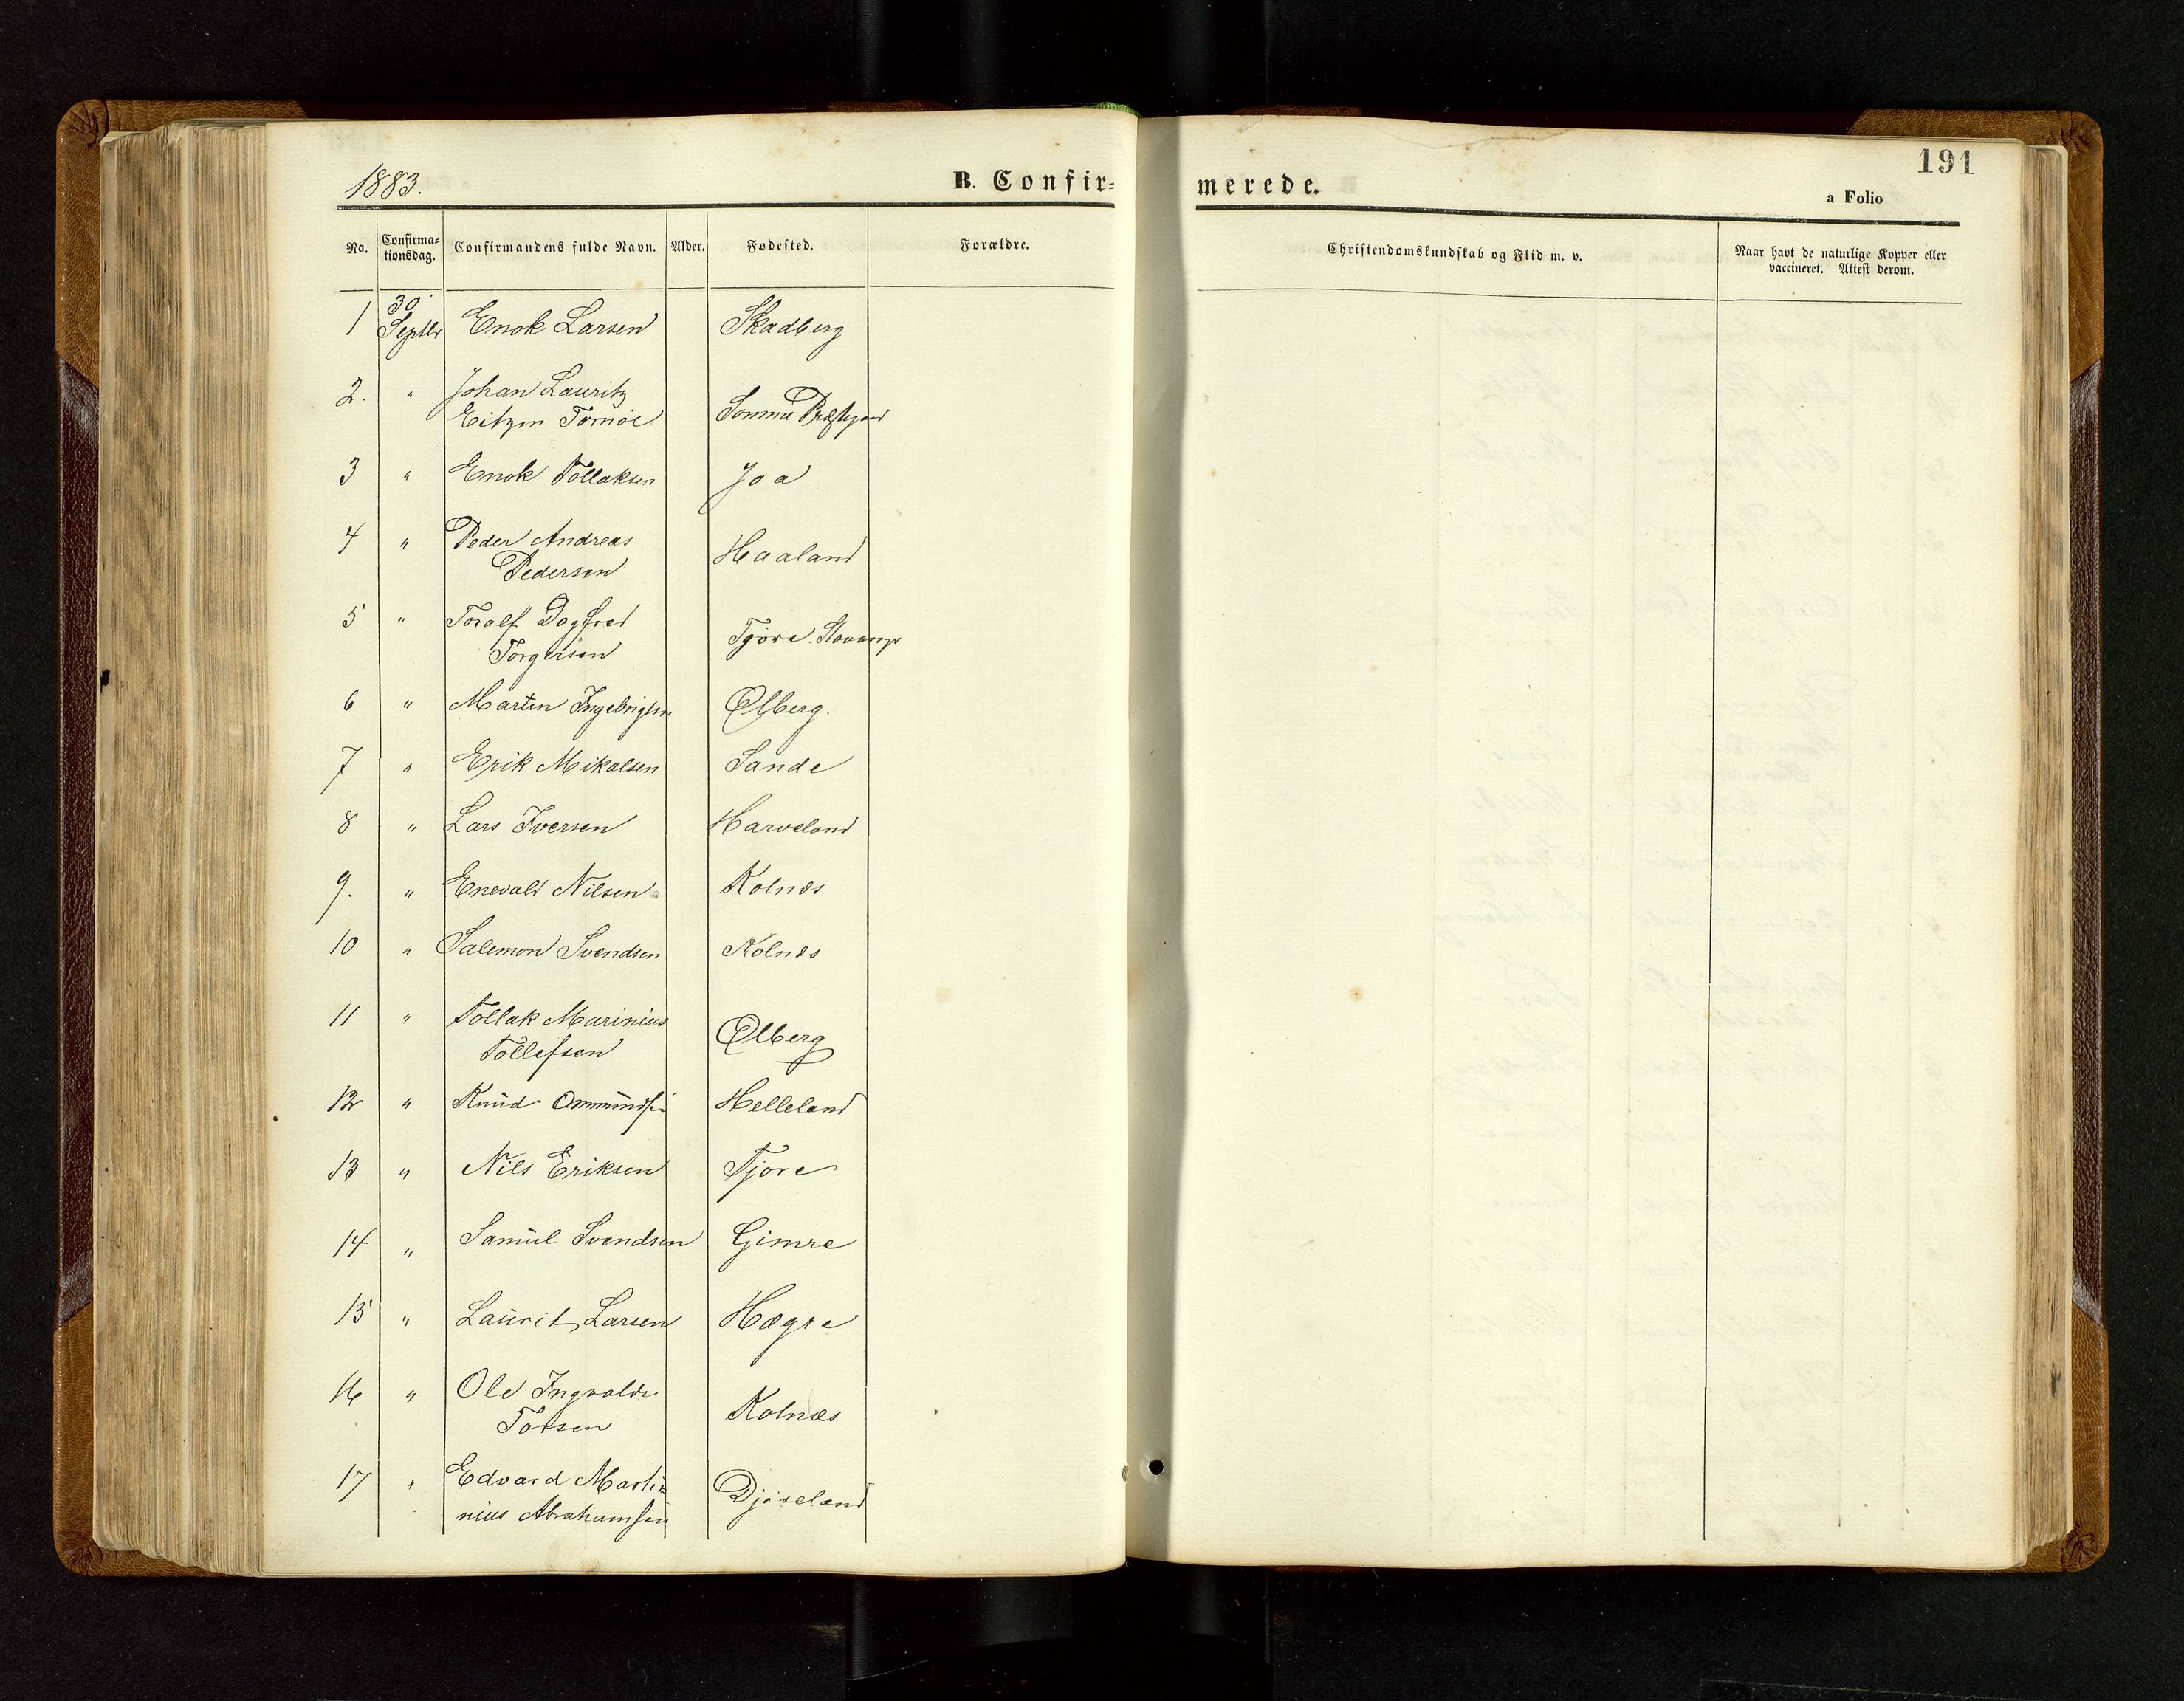 191
1883.
B. Confir=
merede.
a Folio
No.
Confirma=
tionsdag.
Confirmandens fulde Navn.
Alder.
Fødested.
Forældre.
Christendomskundskab og Flid m. v.
Naar havt de naturlige Kopper eller
vaccineret. Attest derom.
30
1 Septbr Enok Larsen Skadberg
2. " Johan Lauritz
Eitzen Tornøe Somme Præstgaard
3 " Enok Tollaksen Joa
4 " Peder Andreas
Pedersen Haaland
5 " Toralf Dagfred
Torgersen Tjøre. Stavanger
6 " Martin Ingebrigtsen Ølberg.
7 " Erik Mikalsen Sande
8 " Lars Iversen Harveland
9. " Enevald Nilsen Kolnæs
10 " Salemon Svendsen Kolnæs
11 " Tollak Marinius
Tollefsen Ølberg
12 " Knud Ommundsen Helleland
13 " Nils Eriksen Tjore
14 " Samuel Svendsen Gimre
15 " Laurits Larsen Hægre
16 " Ole Ingvald
Torsen Kolnæs
17 " Edvard Marti=
nius Abrahamsen Djøseland